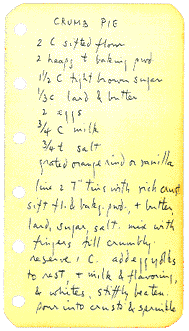 CRUMB PIE
2 C sifted flour
2 heap t baking pwd
1½ C light brown sugar
⅓ C lard & butter
2 eggs
¾ C milk
¾ t salt
grated orange rind or vanilla
line 2 7" tins with rich crust
sift fl. & bakg. pwd., + butter,
lard, sugar, salt. mix with
fingers till crumbly
reserve 1 C. add egg yolks
to rest, + milk & flavoring,
& whites, stiffly beaten.
pour into crusts & sprinkle